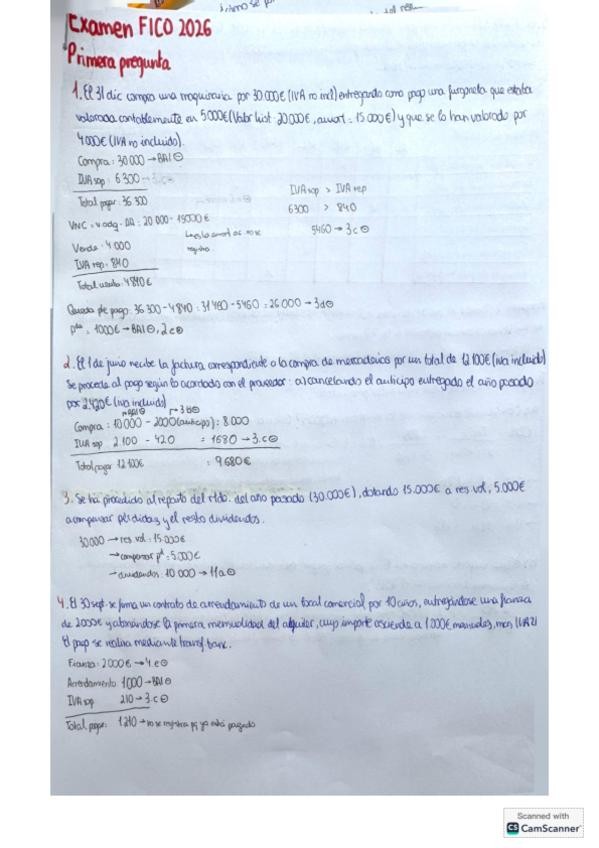 Examen FICO 2026
Primera pregunta
1. El 31 dic compra una maquinaria por 30.000€ (IVA no incl) entregando como pago una furgoneta que estaba
valorada contablemente en 5000€ (Valor hist: 20000€, amort: 15000€) y que se lo han valorado por
4000€ (IVA no incluido).
Compra: 30000 → BAI ⊖
IVA sop: 6300
Total pagar: 36 300
VNC = v adq - DA: 20000 - 15000 €
Venta: 4.000
IVA rep: 840
Total venta: 4840€
IVA sop > IVA rep
6300 > 840
5460 → 3c ⊖
Queda pte pago: 36 300 - 4840 = 31460 - 5460 = 26.000 → 3d ⊖
pda = 1000€ → BAI ⊖, 2c ⊖
2. El 1 de junio recibe la factura correspondiente a la compra de mercaderías por un total de 12 100€ (iva incluido)
Se procede al pago según lo acordado con el proveedor: a) cancelando el anticipo entregado el año pasado
por 2420€ (iva incluido)
Compra: 10000 - 2000 (anticipo) = 8.000
IVA sop 2 100 - 420 = 1680 → 3.c ⊖
Total pagar 12 100€ = 9680€
3. Se ha procedido al reparto del rtdo. del año pasado (30.000€), dotando 15.000€ a res vol, 5.000€
a compensar pérdidas y el resto dividendos.
30000 → res vol: 15.000€
→ compensar pd: 5.000€
→ dividendos: 10 000 → 11a ⊖
4. El 30 sept. se firma un contrato de arrendamiento de un local comercial por 10 años, entregándose una fianza
de 2000€ y abonándose la primera mensualidad del alquiler, cuyo importe asciende a 1000€ mensuales, más IVA 21
El pago se realiza mediante transf. banc.
Fianza: 2000€ → 4.e ⊖
Arrendamiento 1000 → BAI ⊖
IVA sop 210 → 3.c ⊖
Total pagar: 1210 → no se registra pq ya está pagado
Scanned with
CS CamScanner